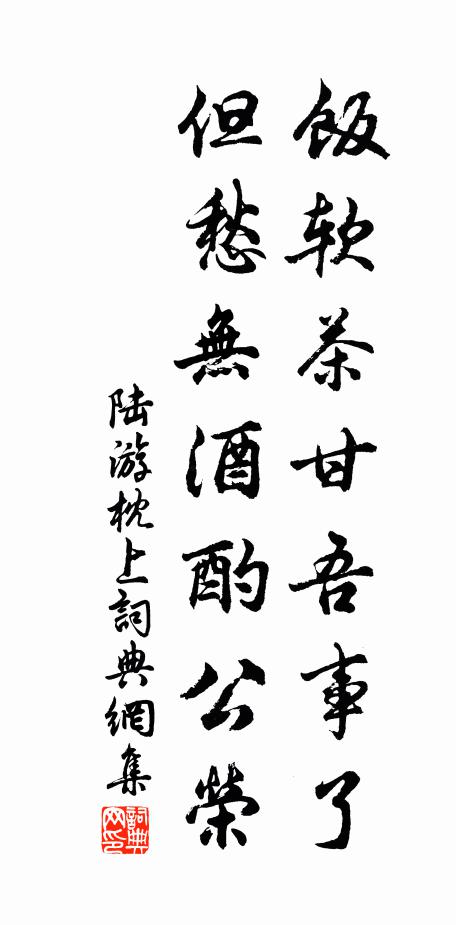 飯软茶甘吾事了
但愁無酒酌公榮
陆游枕上詞典網集
詞典网印